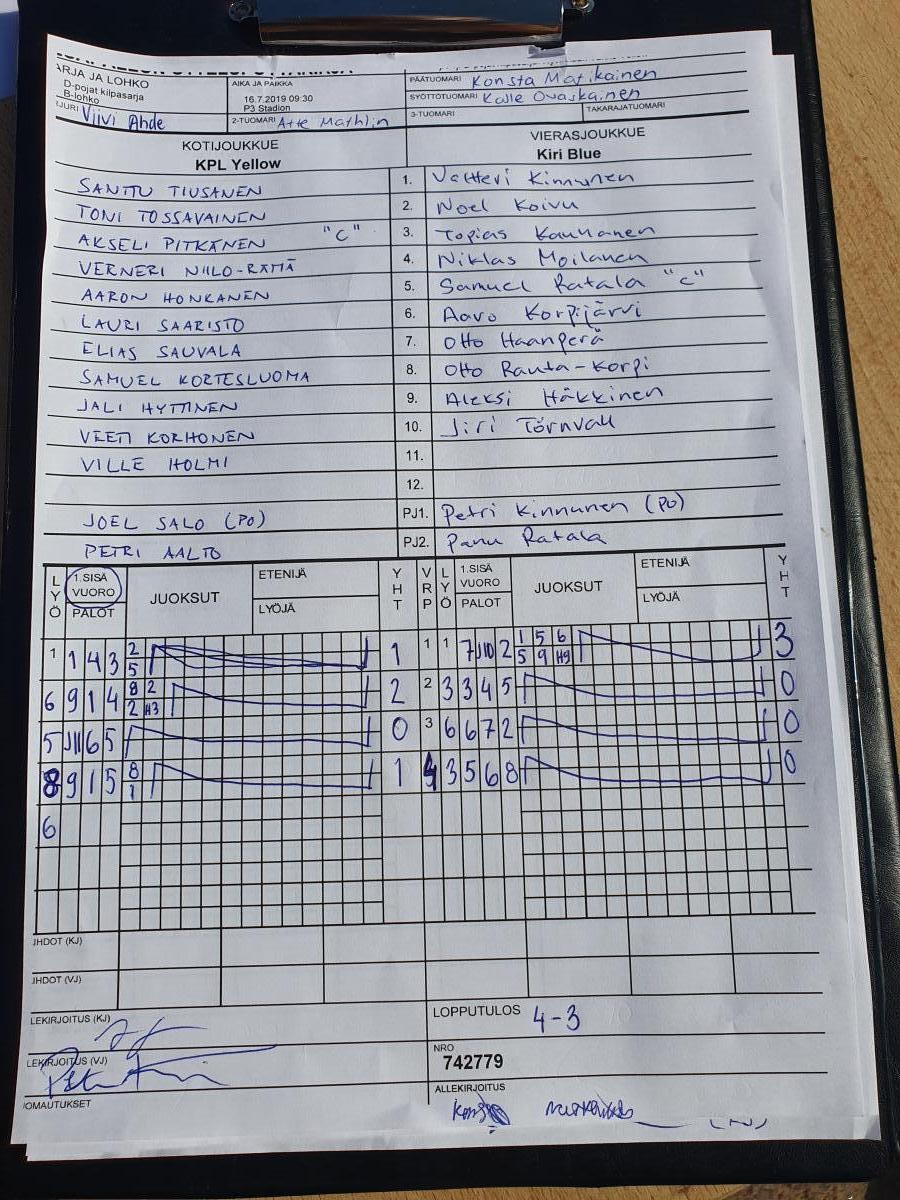 ARJA JA LOHKO
D-pojat kilpasarja
B-lohko
AIKA JA PAIKKA
16.7.2019 09:30
P3 Stadion
PÄÄTUOMARI Konsta Matikainen
SYÖTTÖTUOMARI Kalle Ovaskainen
IJURI Viivi Ahde
2-TUOMARI Atte Mathlin
3-TUOMARI
TAKARAJATUOMARI
KOTIJOUKKUE
KPL Yellow
VIERASJOUKKUE
Kiri Blue
SANTTU TIUSANEN 1. Valtteri Kinnunen
TONI TOSSAVAINEN 2. Noel Koivu
AKSELI PITKÄNEN "C" 3. Topias Kauhanen
VERNERI NIILO-RÄMÄ 4. Niklas Moilanen
AARON HONKANEN 5. Samuel Ratala "C"
LAURI SAARISTO 6. Aavo Korpijärvi
ELIAS SAUVALA 7. Otto Haanperä
SAMUEL KORTESLUOMA 8. Otto Rauta-Korpi
JALI HYTTINEN 9. Aleksi Häkkinen
VEETI KORHONEN 10. Jiri Törnvall
VILLE HOLMI 11.
12.
JOEL SALO (PO) PJ1. Petri Kinnunen (PO)
PETRI AALTO PJ2. Panu Ratala
LYÖ 1.SISÄ VUORO PALOT JUOKSUT ETENIJÄ LYÖJÄ YHT VRP LYÖ 1.SISÄ VUORO PALOT JUOKSUT ETENIJÄ LYÖJÄ YHT
1 1 4 3 2 5 1 1 1 7 J10 2 1 5 6 5 9 H9 3
6 9 1 4 8 2 2 H3 2 2 3 3 4 5 0
5 J11 6 5 0 3 6 6 7 2 0
8 9 1 5 8 1 1 4 3 5 6 8 0
6
JHDOT (KJ)
JHDOT (VJ)
LEKIRJOITUS (KJ)
LOPPUTULOS 4-3
LEKIRJOITUS (VJ)
NRO
742779
OMAUTUKSET
ALLEKIRJOITUS